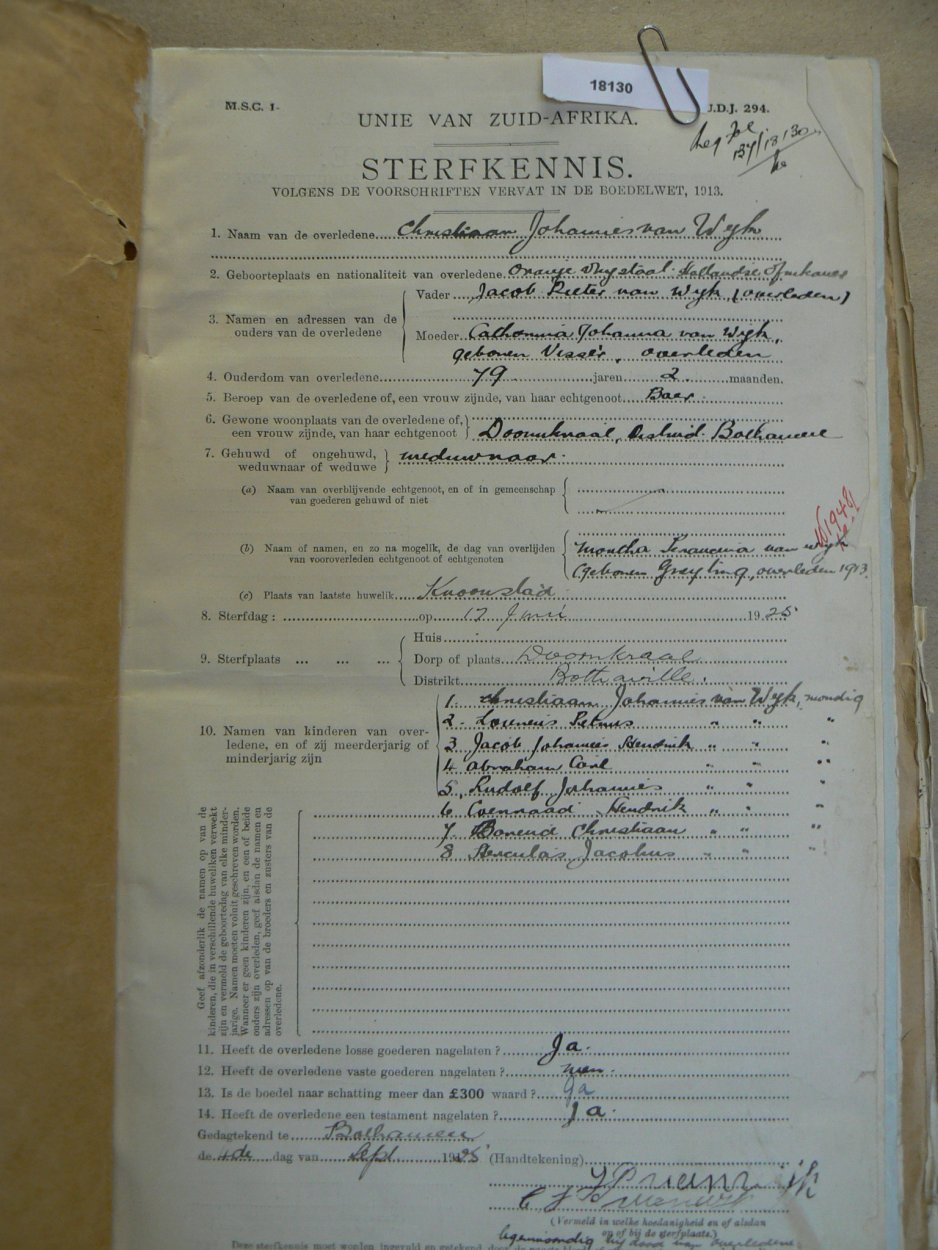 18130
M.S.C. 1. J.D.J. 294.
UNIE VAN ZUID-AFRIKA.
137/18130
STERFKENNIS.
VOLGENS DE VOORSCHRIFTEN VERVAT IN DE BOEDELWET, 1913.
1. Naam van de overledene Christiaan Johannes van Wyk
2. Geboorteplaats en nationaliteit van overledene. Oranje Vrystaat Hollandse Afrikaner
3. Namen en adressen van de ouders van de overledene
Vader Jacob Pieter van Wyk, (overleden)
Moeder Catharina Johanna van Wyk,
geboren Visser, overleden
4. Ouderdom van overledene 79 jaren 2 maanden.
5. Beroep van de overledene of, een vrouw zijnde, van haar echtgenoot Boer.
6. Gewone woonplaats van de overledene of,
een vrouw zijnde, van haar echtgenoot Doornkraal, Distrikt Bothaville
7. Gehuwd of ongehuwd,
weduwnaar of weduwe
weduwnaar.
(a) Naam van overblijvende echtgenoot, en of in gemeenschap
van goederen gehuwd of niet
(b) Naam of namen, en zo na mogelik, de dag van overlijden
van vooroverleden echtgenoot of echtgenoten
Martha Francina van Wyk
(geboren Greyling, overleden 1913
(c) Plaats van laatste huwelik Kroonstad
8. Sterfdag : op 17 Junie 1925
9. Sterfplaats ... ... ...
Huis
Dorp of plaats Doornkraal
Distrikt Bothaville.
10. Namen van kinderen van over-
ledene, en of zij meerderjarig of
minderjarig zijn
1. Christiaan Johannes van Wyk, mondig
2. Petrus " " "
3 Jacob Johannes Hendrik " " "
4 Abraham Carl " " "
5, Rudolf Johannes " " "
6 Coenraad Hendrik " " "
7 Barend Christiaan " " "
8 Herculas Jacobus " " "
Geef afzonderlik de namen op van de
kinderen, die in verschillende huweliken verwekt
zijn en vermeld de geboortedag van elke minder-
jarige. Namen moeten voluit geschreven worden.
Wanneer er geen kinderen zijn, en een of beide
ouders zijn overleden, geef alsdan de namen en
adressen op van de broeders en zusters van de
overledene.
11. Heeft de overledene losse goederen nagelaten ? Ja.
12. Heeft de overledene vaste goederen nagelaten ? neen.
13. Is de boedel naar schatting meer dan £300 waard ? Ja
14. Heeft de overledene een testament nagelaten ? Ja.
Gedagtekend te Bothaville
de 4de dag van Sept 1925 (Handtekening)
(Vermeld in welke hoedanigheid en of alsdan
op of bij de sterfplaats.)
tegenwoordig bij dood van overledene
Deze sterfkennis moet worden ingevuld en getekend door de naaste